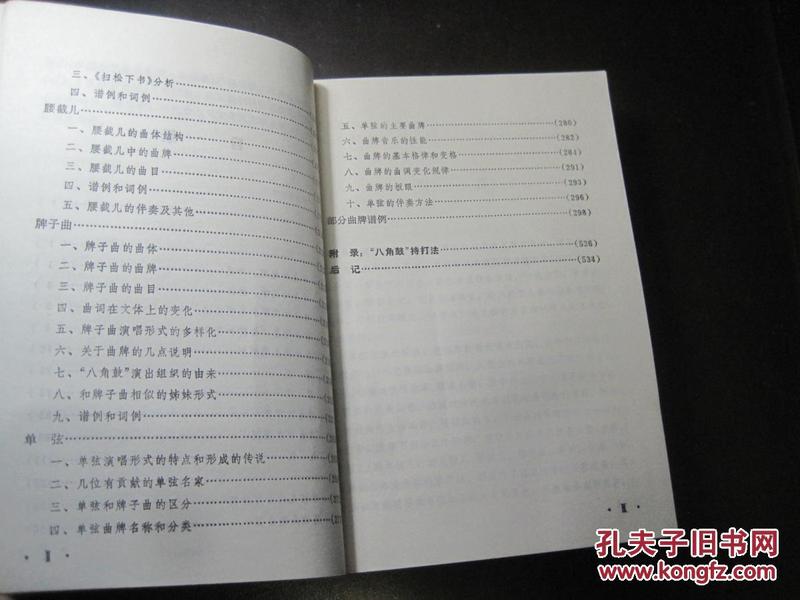 三、《扫松下书》分析
四、谱例和词例
腰截儿
一、腰截儿的曲体结构
二、腰截儿中的曲牌
三、腰截儿的曲目
四、谱例和词例
五、腰截儿的伴奏及其他
牌子曲
一、牌子曲的曲体
二、牌子曲的曲牌
三、牌子曲的曲目
四、曲词在文体上的变化
五、牌子曲演唱形式的多样化
六、关于曲牌的几点说明
七、“八角鼓”演出组织的由来
八、和牌子曲相似的姊妹形式
九、谱例和词例
单 弦
一、单弦演唱形式的特点和形成的传说
二、几位有贡献的单弦名家
三、单弦和牌子曲的区分
四、单弦曲牌名称和分类
五、单弦的主要曲牌(280)
六、曲牌音乐的性能(282)
七、曲牌的基本格律和变格(284)
八、曲牌的曲调变化规律(291)
九、曲牌的板眼(293)
十、单弦的伴奏方法(296)
部分曲牌谱例(298)
附 录：“八角鼓”持打法(526)
后 记(534)
孔夫子旧书网
www.kongfz.com